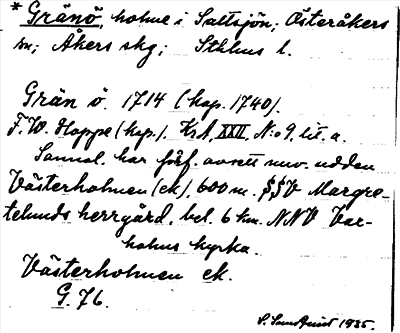 * Gränö, holme i Saltsjön; Österåkers
sn; Åkers skg; Sthlms l.
Grän ö. 1714 (kop. 1740).
F. W. Hoppe (krp.). KrA. XXII. N:o 9. lit. a.
Sannol. har förf. avsett nuv. udden
Västerholmen (ek), 600 m. SSV Margre-
telunds herrgård, bel. 6 km. NNV Vax-
holms kyrka.
Västerholmen ek.
G. 76.
S. Sundquist 1935.